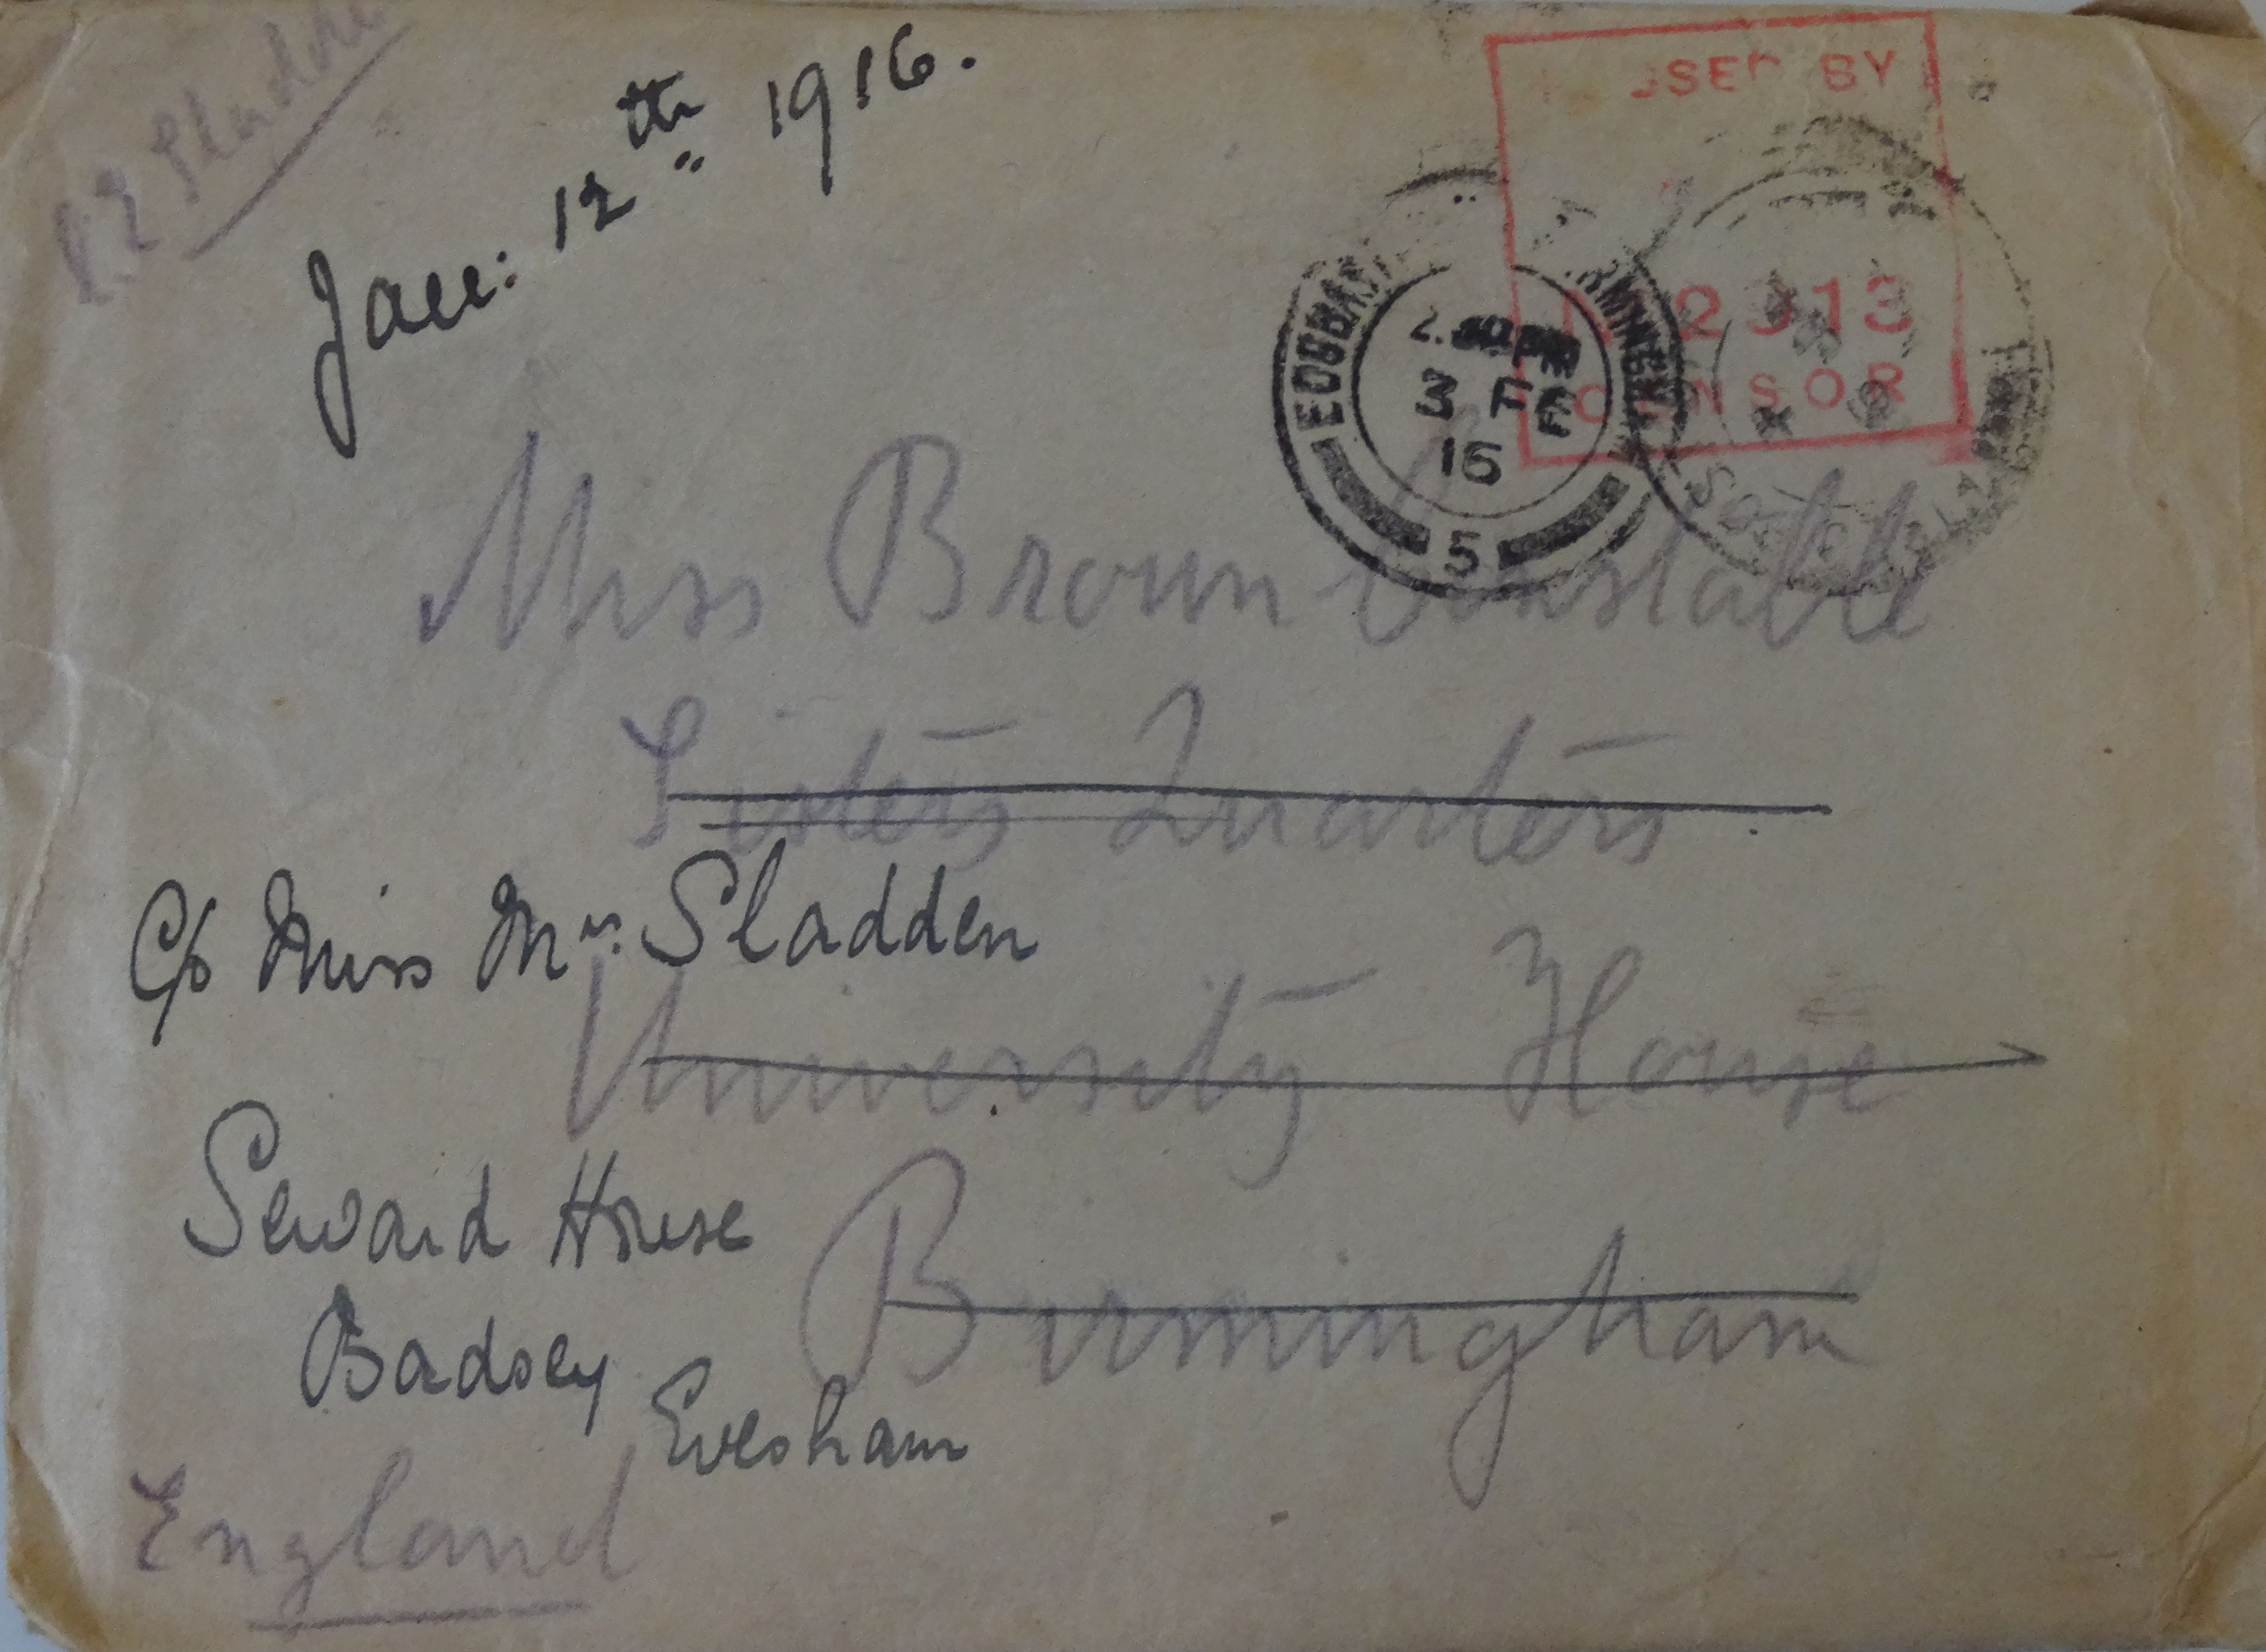 Sladden
Jan: 12th 1916.
SSED BY
2313
CENSOR
EDGBAST RMINGHAM
3 FE
16
5
Miss Brown Constable
Sisters Quarters
C/o Miss M. Sladden
University House
Seward House
Birmingham
Badsey
Evesham
England